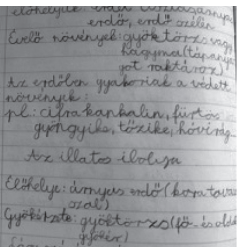 erdő, erdő szélén
Évelő növények: gyöktörzs vagy
hagyma (tápanya
got raktároz)
Az erdőben gyakoriak a védett
növények:
pl.: cifra kankalin, fürtös
gyöngyike, tőzike, hóvirág
Az illatos ibolya
Élőhelye: árnyas erdő (kora tava
Gyökérzete: gyöktörzs (fő- és old
gyökér)